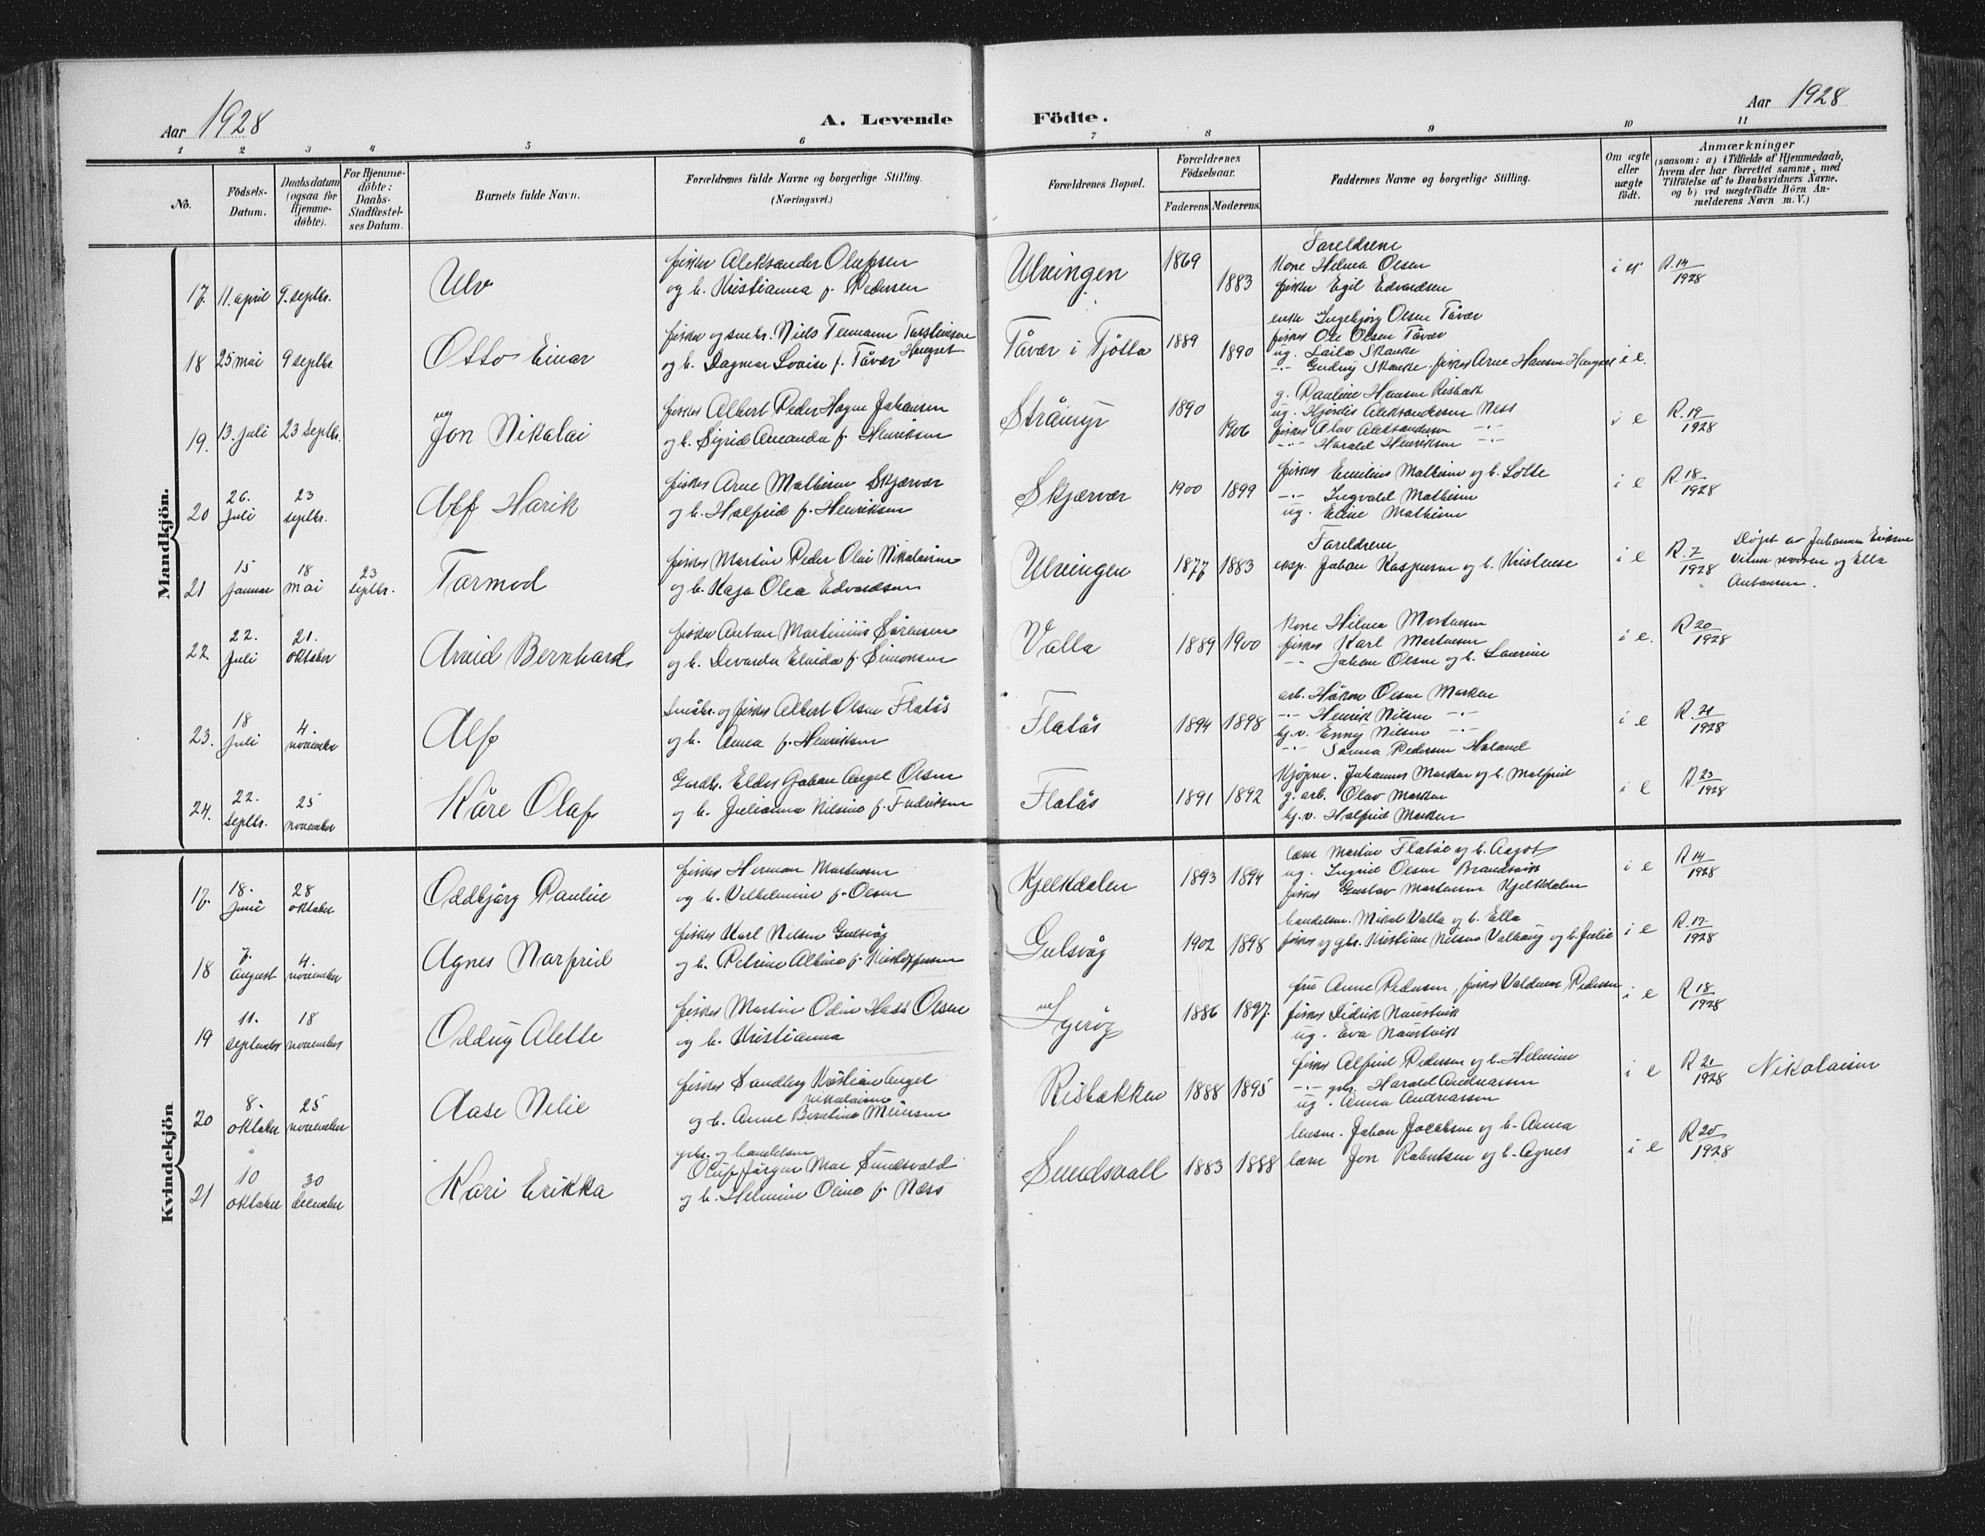 Aar 1928
A. Levende Födte.
Aar 1928
1 2 3 4 5 6 7 8 9 10 11
No.
Födsels-Datum.
Daabsdatum (ogsaa for Hjemmedøbte).
For Hjemmedøbte: Daabs-Stadfæstelses Datum.
Barnets fulde Navn.
Forældrenes fulde Navne og borgerlige Stilling.
(Næringsvei.)
Forældrenes Bopæl.
Forældrenes Födselsaar.
Faderens. Moderens.
Faddernes Navne og borgerlige Stilling.
Om ægte eller uægte födt.
Anmærkninger
(saasom: a) i Tilfælde af Hjemmedaab,
hvem der har forrettet samme, med
Tilföielse af to Daabsvidners Navne.
og b) ved uægtefödte Börn An-
melderens Navn m. V.)
Mandkjön.
17. 11. april 9. septbr. Ulv
fisker Aleksander Olufsen
og h. Kristianna f. Pedersen
Ulvingen 1869 1883
Foreldrene
Kone Hilma Olsen
fisker Egil Edvardsen
i e R. 14/1928
18 25 mai 9 septbr. Otto Einar
fisker og smbr. Niels Temann Torstensen Haugset
og h. Dagmar Lovise f. Tåvær
Tåvær i Tjötta 1889 1890
enke Ingebjörg Olsen Tåvær
fisker Ole Olsen Tåvær
ug. Laila Skanke
-"- Gudrug Skanke, fisker Arne Hansen Haugset
i e.
19. 13. juli 23 septbr. Jon Nikolai
fisker Albert Peder Hagen Johansen
og h. Sigrid Amanda f. Henriksen
Stråmyr 1890 1906
g. Pauline Hansen Risbakk
ug. Hjördis Aleksandersen Ness
fisker Olav Aleksandersen -"-
-"- Harald Henriksen -"-
i e R. 19/1928
20 26. juli 23 septbr. Alf Harik
fisker Arne Mathisen Skjærvær
og h. Halfrid f. Henriksen
Skjærvær 1900 1899
fisker Emilius Mathisen og h. Lotte
-"- Ingvald Mathisen
ug. Eline Mathisen
i e R. 18/1928
21 15 januar 18 mai 23 septbr. Tormod
fisker Martin Peder Olai Nikolaisen
og h. Kaja Olea Edvardsen
Ulvingen 1877 1883
Foreldrene
eksp. Johan Kaspersen og h. Kristense
i e R. 7/1928
Døpt av Johannes Eriksen
og Ella
Antonsen.
22 22. juli 21. oktober Arvid Bernhard
fisker Anton Martinius Sörensen
og h. Devarda Elvida f. Simonsen
Valla 1889 1900
Kone Hilma Mortensen
fisker Karl Mortensen
-"- Johan Olsen og h. Laurine
i e. R 20/1928
23. 18 juli 4. november Alf
Småbr. og fisker Albert Olsen Flatås
og h. Anna f. Henriksen
Flatås 1894 1898
arb. Håkon Olsen Marken
-"- Henrik Nilsen -"-
hj. v. Enny Nilsen -"-
-"- Sanna Pedersen Haland
i e R. 21/1928
24. 22. septbr. 25 november Kåre Olaf
Gardbr. Elder Johan Angel Olsen
og h. Julianna Nilsine f. Fredriksen
Flatås 1891 1892
Kjøpm. Johannes Marken og h. Malfrid
g. arb. Olav Marken
hj. v. Halfrid Marken
i e R 23/1928
Kvindekjön
17. 18. juni 28 oktober Oddbjörg Pauline
fisker Herman Mortensen
og h. Vilhelmine f. Olsen
Kjelkdalen 1893 1894
lærer Martin Flatås og h. Aagot
ug. Ingrid Olsen Brandsvik
fisker Gustav Mortensen Kjelkdalen
i e R 14/1928
18 7. august 4. november Agnes Narfrid
fisker Karl Nilsen Gulsvåg
og h. Petrine Albine f. Kristoffersen
Gulsvåg 1902 1898
handelsm. Mikal Valla og h. Ella
fisker og gbr. Kristian Nilsen Valhaug og h. Julie
i e R. 17/1928
19 11. september 18 november Oddny Alette
fisker Martin Odin Hass Olsen
og h. Kristianna
Igeröy 1886 1897.
fru Anne Pedersen, fisker Valdemar Pedersen
fisker Didrik Naustvik
ug. Eva Naustvik
i e R 18/1928
20 8. oktober 25 november Aase Nelie
fisker Sandberg Kristian Angel Nikolaisen
og h. Anne Bertine Monsen
Risbakken 1888 1895
fisker Alfred Pedersen og h. Helmine
-"- gbr. Harald Andreassen
ug. Anna Andreassen
i e R 21/1928 Nikolaisen
21 10 oktober 30 desember Kari Erikka
gbr. og handelsm
Oluf Jörgen Moe Sundsvold
og h. Helmine Oline f. Næss
Sundsvoll 1883 1888
lensm. Johan Jacobsen og h. Anna
lærer Jon Robertsen og h. Agnes
i e R 20/1928